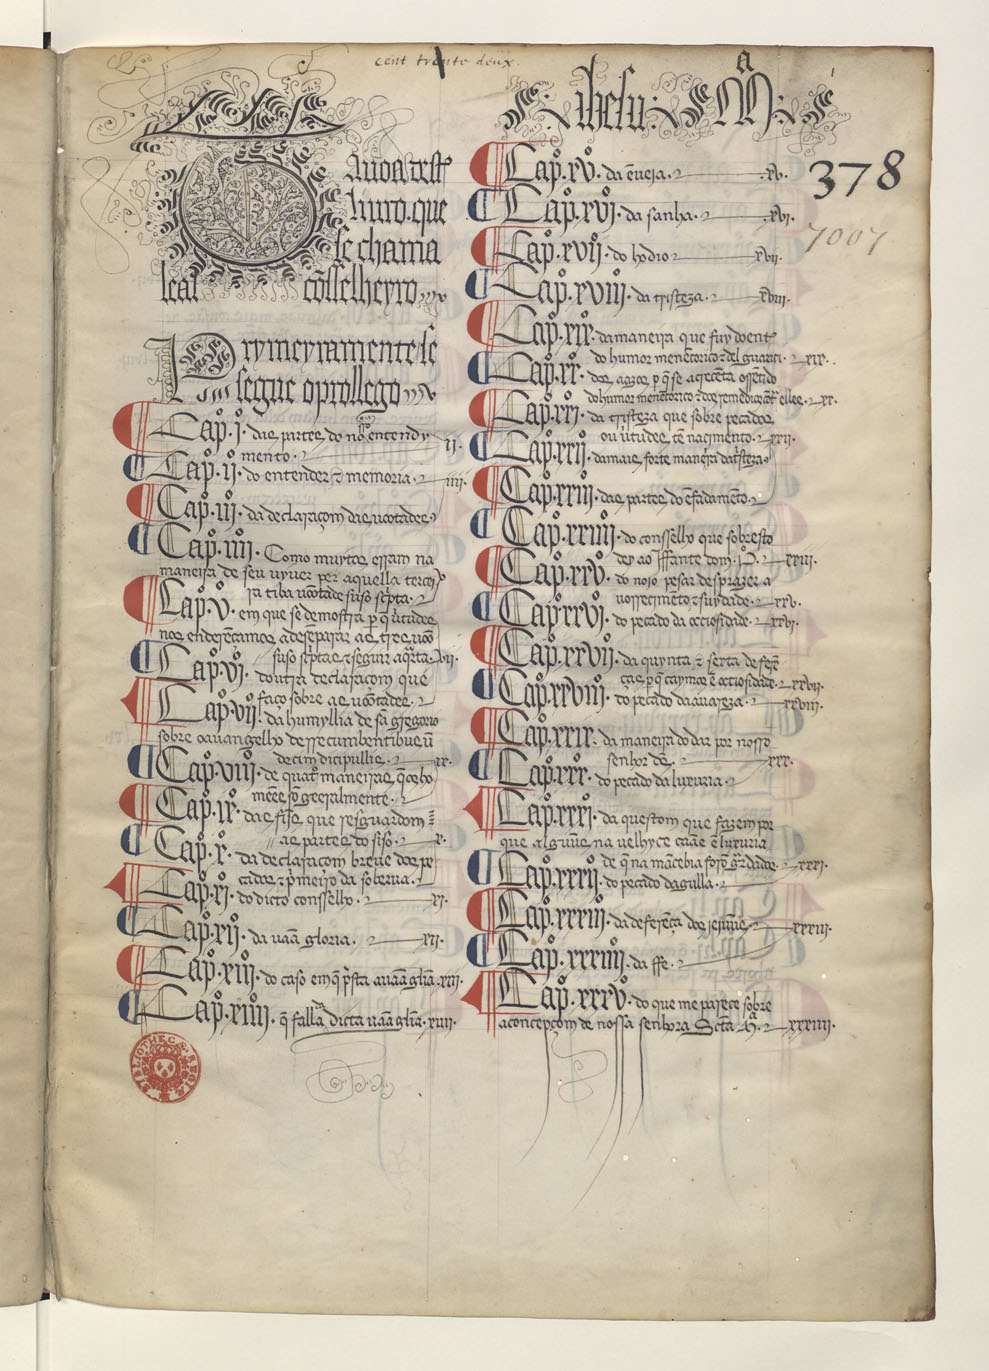 cent trente deux.
Jhesu: M a
378
7007
Tauoa dest
liuro. que
se chama
leal cōsselheyro
Prymeyramente se
segue o prollego
Cap.º i. das partes do nosso entendy
mento. ii.
Cap.º ii. do entender & memoria. iiii.
Cap.º iii. da declaraçom das uōtades
Cap.º iiii. Como muytos erram na
maneira de seu uyuer per aquella terceyra
uōtade suso scpta.
Cap.º v. em que se demostra
nos enderēcamos a deseparar as tres uōo
suso sptas & seguir a qrta. vii.
Cap.º vi. doutra declaraçom que
faço sobre as uōtades.
Cap.º vii. da humyllia de sā gregorio
sobre o auangelho de recumbentibus ū
decim dicipullis. ix.
Cap.º viii. de quatro maneiras
geeralmente.
Cap.º ix. das fijs que resguardom
as partes do siso. x.
Cap.º x. da declaraçom breue dos pe
cados & pmeiro da soberua.
Cap.º xi. do dicto conssello. xi.
Cap.º xii. da uaā gloria. xii.
Cap.º xiii. do caso em q psta a uaā glia. xiii.
Cap.º xiiii. q falla da dicta uaā glia. xiiii.
Cap.º xv. da ēueja. xv.
Cap.º xvi. da sanha. xvi.
Cap.º xvii. do hodio xvii.
Cap.º xviii. da tristeza. xviii.
Cap.º xix. da maneira que fuy doente
do humor menēcorico & del guarci. xix.
Cap.º xx. dos aazos p q se aqecēta o ssentido
do humor menēcorico & dos remedios cōt elles. xx.
Cap.º xxi. da tristeza que sobre pecados
ou uirtudes tē nacimento. xxii.
Cap.º xxii. da mais forte maneira da tsteza
Cap.º xxiii. das partes do ēfadamēto.
Cap.º xxiiii. do conssello que sobresto
dey ao Iffante dom. P. xxiii.
Cap.º xxv. do nojo pesar desprazer a
uorrecimēto & suydade. xxv.
Cap.º xxvi. do pecado da occiosidade. xxvi.
Cap.º xxvii. da quynta & sexta defeē
ças p q caymos ē occiosidade. xxvii.
Cap.º xxviii. do pecado da auareza. xxviii.
Cap.º xxix. da maneira do dar por nosso
senhor ds. xxx.
Cap.º xxx. do pecado da luxuria.
Cap.º xxxi. da questom que fazem por
que alguūs na uelhyce caāe ē luxuria
de q na mācebia forō grdados. xxxi.
Cap.º xxxii. do pecado da gulla.
Cap.º xxxiii. da deferēça dos jejuūs. xxxiii.
Cap.º xxxiiii. da ffe.
Cap.º xxxv. do que me parece sobre
a concepçom de nossa senhora Scta Mª. xxxiiii.
BIBLIOTHECÆ REGIÆ